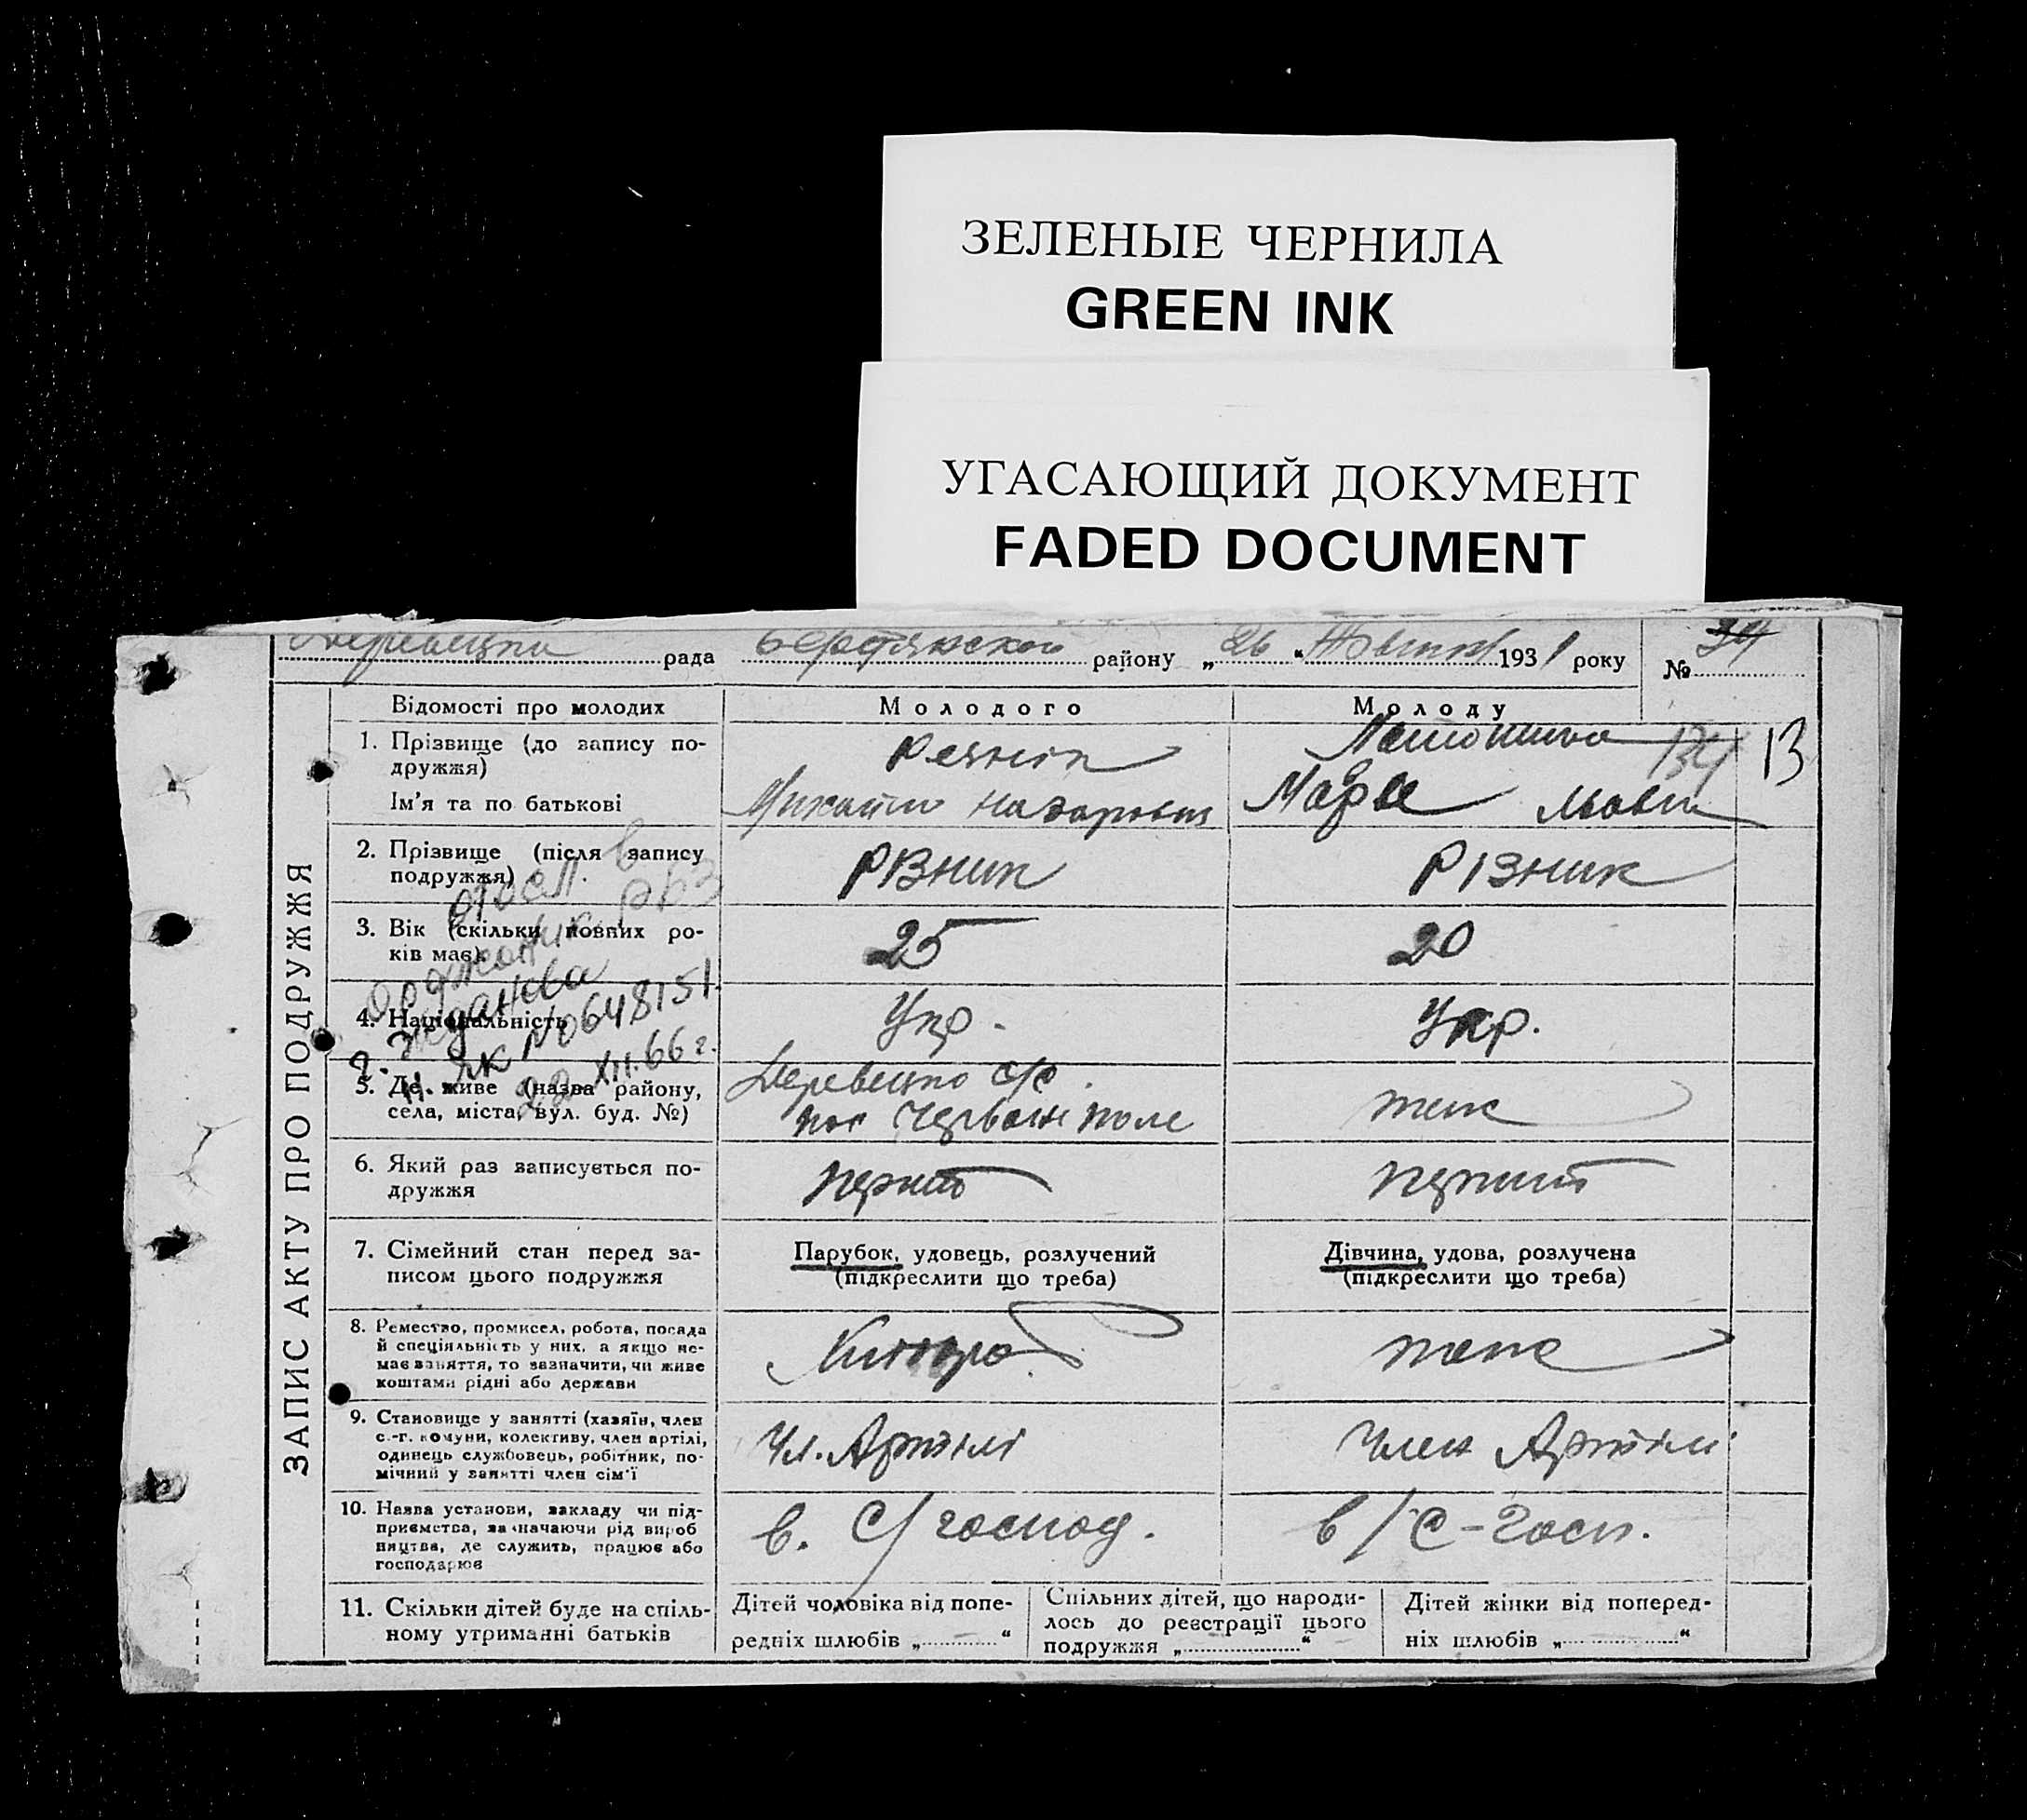 ЗЕЛЕНЫЕ ЧЕРНИЛА
GREEN INK
УГАСАЮЩИЙ ДОКУМЕНТ
FADED DOCUMENT
рада району „26“ Жовтня 1931 року № 34
ЗАПИС АКТУ ПРО ПОДРУЖЖЯ
Відомості про молодих
Молодого
Молоду
1. Прізвище (до запису по-
дружжя)
134 13
Ім'я та по батькові
Михайло Назарович
Марія
2. Прізвище (після запису
подружжя)
Різник
Різник
3. Вік (скільки повних ро-
ків має)
25
20
4. Національність
Укр.
Укр.
г. Жданова
ЯК №0648151
22.XII.66 г.
5. Де живе (назва району,
села, міста, вул. буд. №)
с/р.
пос Червоне поле
теж
6. Який раз записується по-
дружжя
перший
перший
7. Сімейний стан перед за-
писом цього подружжя
Парубок, удовець, розлучений
(підкреслити що треба)
Дівчина, удова, розлучена
(підкреслити що треба)
8. Ремество, промисел, робота, посада
й спеціяльність у них, а якщо не-
має заняття, то зазначити, чи живе
коштами рідні або держави
9. Становище у занятті (хазяїн, член
с.-г. комуни, колективу, член артілі,
одинець службовець, робітник, по-
мічний у занятті член сім'ї
Чл. Артілі
Член Артілі
10. Назва установи, закладу чи під-
приємства, зазначаючи рід вироб
ництва, де служить, працює або
господарює
в. с/господ.
в/с-госп.
11. Скільки дітей буде на спіль-
ному утриманні батьків
Дітей чоловіка від попе-
редніх шлюбів „ “
Спільних дітей, що народи-
лось до реєстрації цього
подружжя „ “
Дітей жінки від поперед-
ніх шлюбів „ “